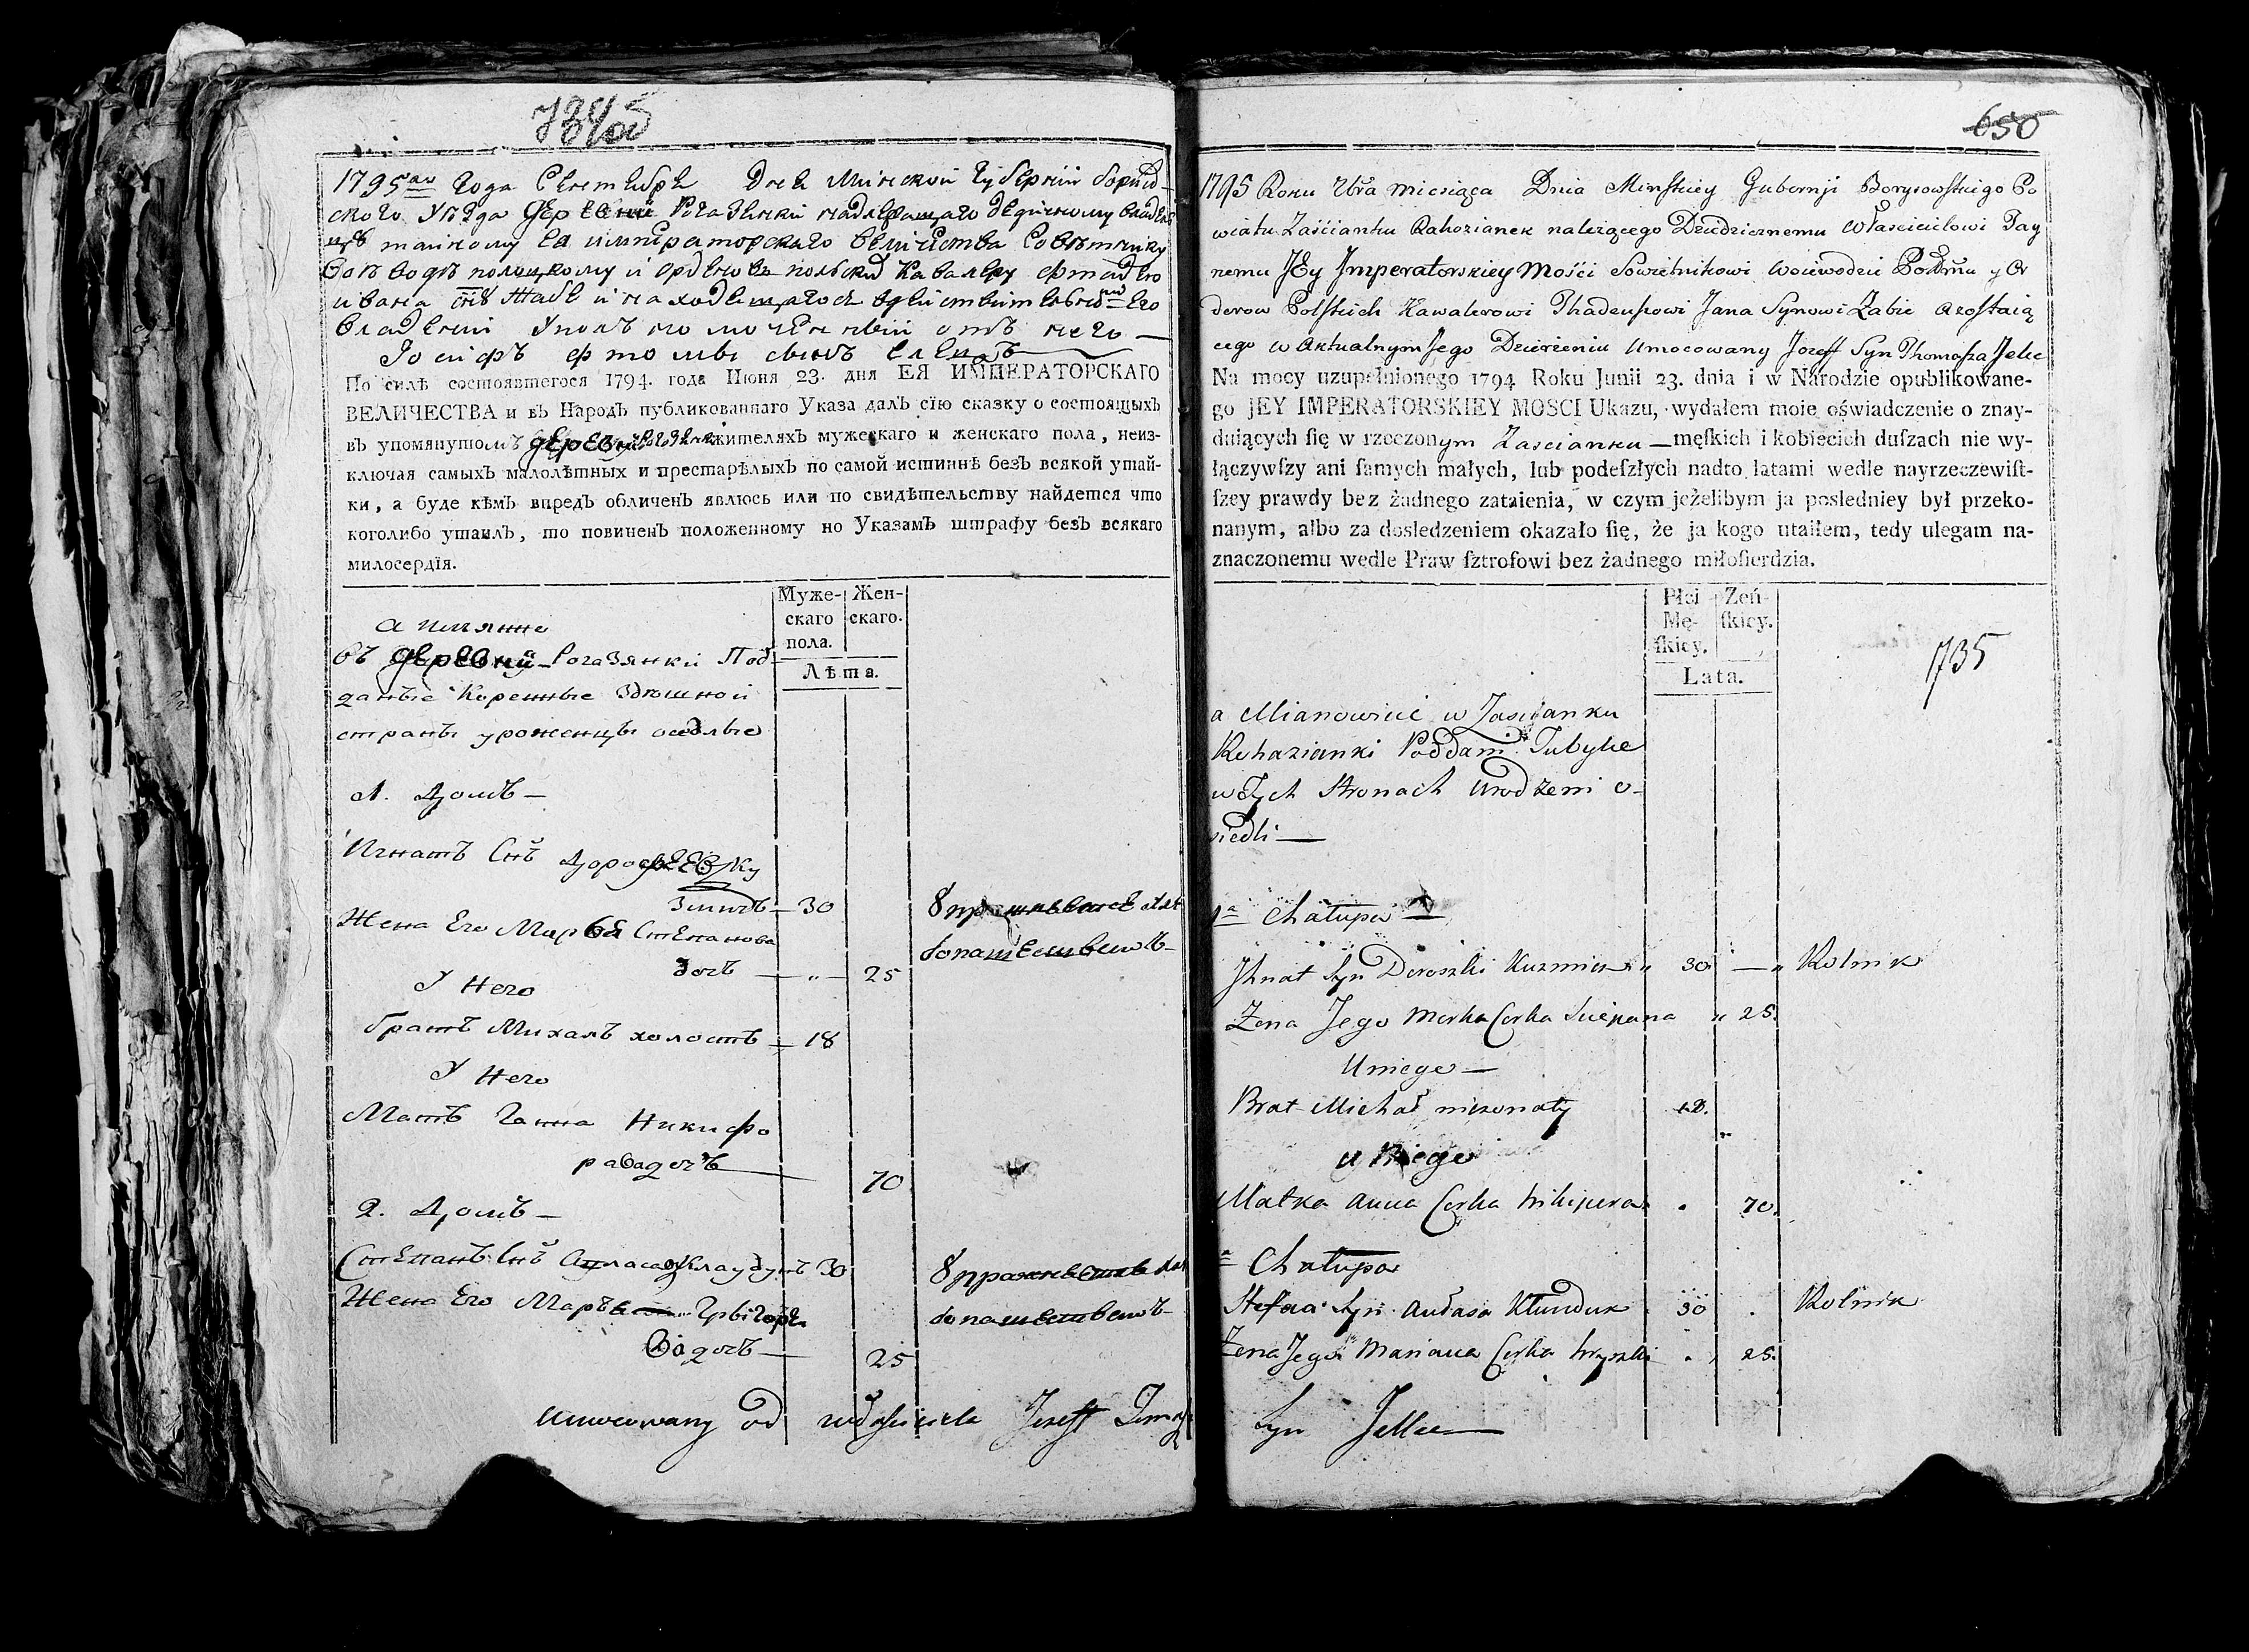 1795го года Сентебре Дня Минской Губернии Борисо-
ского Уезда деревни Рогазянки надлежащаго дедичному владел
цу тайному ЕЯ императорского величества Советнику
Воеводе полоцкому и орденовъ польскихъ Кавалеру фтадею
ивана сну Жабе и находещагось вдействительномъ Его
владении Уполъномоченный отъ него —
Іосифъ фтомы сынъ Еленъ
По силѣ состоявшегося 1794. года Июня 23. дня ЕЯ ИМПЕРАТОРСКАГО
ВЕЛИЧЕСТВА и въ Народъ публикованнаго Указа далъ сію сказку о состоящыхъ
въ упомянутомъ деревни жителяхъ мужескаго и женскаго пола, неиз-
ключая самыхъ малолѣтныхъ и престарѣлыхъ по самой истиннѣ безъ всякой утай-
ки, а буде кѣмъ впредъ обличенъ явлюсь или по свидѣтельству найдется что
коголибо утаилъ, то повиненъ положенному по Указамъ штрафу безъ всякаго
милосердія.
Муже-
скаго
пола.
Жен-
скаго.
Лѣта.
а имянно
въ деревни Рогазянки Под
даные Коренные Здѣшной
страны уроженцы оседлые
1. Домъ —
Игнатъ Снъ Дорофеев Ку
змичъ — 30
Жена Его Марья Степанова
дочъ — „ — 25
У Него
братъ Михалъ холостъ — 18
У Него
Матъ Ганна Никифо
равадочъ — 70
2. Домъ —
Степанъ Снъ Клаудукъ 30
Жена Его Марья Григоре
ва дочъ — 25
Umocowany od właściciela Jozeff Tomasz
7345
650
1795 Roku 7bra miesiąca Dnia Minskiey Gubernji Borysowskiego Po
wiatu Zaścianku Rahozianek należącego Dziedzicznemu Właścicielowi Tay
nemu JEy Imperatorskiey Mości Sowietnikowi Woiewodzie y Or
derow Polskich Kawalerowi Thadeuszowi Jana Synowi Żabie a zostaią
cego w Aktualnym Jego Dzierżeniu Umocowany Jozeff Syn Thomasza Jelle
Na mocy uzupełnionego 1794 Roku Junii 23. dnia i w Narodzie opublikowane-
go JEY IMPERATORSKIEY MOSCI Ukazu, wydałem moie oświadczenie o znay-
duiących się w rzeczonym Zascianku — męſkich i kobiecich duſzach nie wy-
łączywſzy ani ſamych małych, lub podeſzłych nadto latami wedle nayrzeczewiſt-
ſzey prawdy bez żadnego zataienia, w czym jeżelibym ja posledniey był przeko-
nanym, albo za dosledzeniem okazało ſię, że ja kogo utaiłem, tedy ulegam na-
znaczonemu wedle Praw ſztrofowi bez żadnego miłoſierdzia.
Płci
Mę-
ſkiey.
Żeń-
ſkiey.
Lata.
1735
a Mianowicie w Zascianku
Rahazianki Poddani Tubylce
w Tych Stronach Urodzeni o-
siedli —
1a Chałupa —
Jhnat Syn Doroszki Kuzmicz „ 30 — „ Rolnik
Żona Jego Marka Corka Sciepana „ 25.
U niego —
Brat Michał nieżonaty 18.
U niego
Matka Anna Corka Nikipera . 70.
a Chałupa
Stefan Syn Aułasa Kłunduk 30 . Rolnik
Żona Jego Mariana Corka hryszki . 25.
Syn Jelle